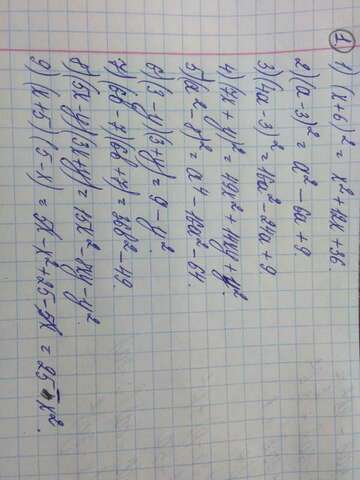 ①
1) (x+6)² = x² + 12x + 36.
2) (a-3)² = a² - 6a + 9.
3) (4a-3)² = 16a² - 24a + 9
4) (7x+y)² = 49x² + 14xy + y².
5) (a²-8)² = a⁴ - 16a² - 64.
6) (3-y)(3+y) = 9 - y².
7) (6b-7)(6b+7) = 36b² - 49.
8) (5x-y)(3x+y) = 15x² - 8xy - y².
9) (x+5)(5-x) = 5x - x² + 25 - 5x = 25 - x².